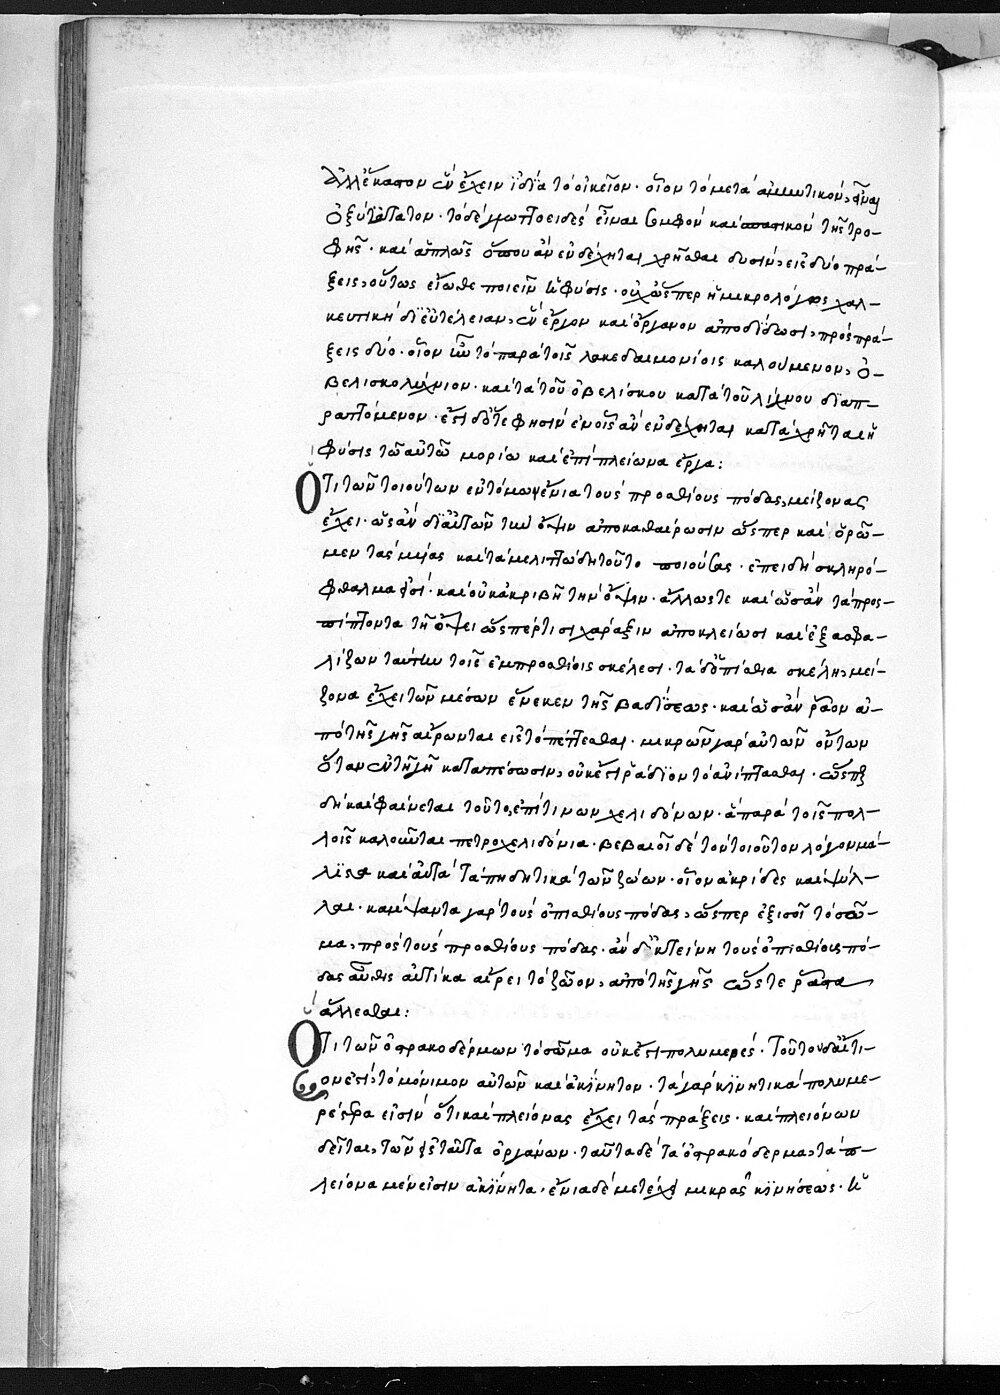 ἀλλ' ἕκαστον ἓν ἔχειν ἰδία τὸ οἰκεῖον· οἷον τὸ μετὰ ἀμυντικὸν, εἶναι
ὀξύτατον· τὸ δὲ γλωττοειδὲς εἶναι σομφὸν καὶ σπαστικὸν τῆς τρο-
φῆς· καὶ ἁπλῶς ὅπου ἂν ἐνδέχηται χρῆσθαι δυσὶν, εἰς δύο πρά-
ξεις, οὕτως εἴωθε ποιεῖν ἡ φύσις· οὐχ ὥσπερ ἡ μικρολόγος χαλ-
κευτικὴ δι' εὐτέλειαν, ἓν ἔργον καὶ ὄργανον ἀποδίδωσι, πρὸς πρά-
ξεις δύο· οἷον ἦν τὸ παρὰ τοῖς λακεδαιμονίοις καλούμενον, ὀ-
βελισκολύχνιον· καὶ τὰ τοῦ ὀβελίσκου κατὰ τοῦ λύχνου διαπ-
ραττόμενον· ἔστι δ' ὅτε φησὶν ἐν οἷς ἂν ἐνδέχηται καταχρῆται ἡ
φύσις τῶ αὐτῶ μορίω καὶ ἐπὶ πλείωνα ἔργα:
Ὅτι τῶν τοιούτων ἐντόμων ἔνια τοὺς προσθίους πόδας, μείζονας
ἔχει· ὡς ἂν δι' αὐτῶν τὴν ὄψιν ἀποκαθαίρωσιν ὥσπερ καὶ ὁρῶ-
μεν τὰς μυίας καὶ τὰ μελιττώδη τοῦτο ποιούσας· ἐπειδὴ σκληρό-
φθαλμά εἰσί· καὶ οὐκ ἀκριβῆ τὴν ὄψιν· ἄλλωστε καὶ ὡς ἂν τὰ προς-
πίπτοντα τῆ ὄψει ὥσπερ τισὶ χάραξιν ἀποκλείωσι καὶ ἐξασφα-
λίζων ταύτην τοῖς ἐμπροσθίοις σκέλεσι· τὰ δ' ὀπίσθια σκέλη, μεί-
ζονα ἔχει τῶν μέσων ἕνεκεν τῆς βαδίσεως· καὶ ὡς ἂν ῥᾶον ἀ-
πὸ τῆς γῆς αἴρωνται εἰς τὸ πέττεσθαι· μικρῶν γὰρ αὐτῶν ὄντων
ὅταν ἐν τῆ γῆ καταπέσωσιν, οὐκ ἔστι ῥάδϊον τὸ ἀνίπτασθαι· ὥσπερ
δὴ καὶ φαίνεται τοῦτο, ἐπί τινων χελιδόνων· ἃ παρὰ τοῖς πολ-
λοῖς καλοῦνται πετροχελιδόνια· βεβαιοῖ δὲ τὸν τοιοῦτον λόγον μά-
λϊστα καὶ αὐτὰ τὰ πηδητικὰ τῶν ζώων· οἷον ἀκρίδες καὶ ψύλ-
λαι· κάμψαντα γὰρ τοὺς ὀπισθίους πόδας, ὥσπερ ἐξισοῖ τὸ σῶ-
μα, πρὸς τοὺς προσθίους πόδας· ἂν δ' ἐκτείνη τοὺς ὀπισθίους πό-
δας αὖθις αὐτίκα αἴρει τὸ ζῶον, ἀπὸ τῆς γῆς ὥστε ῥᾶστα
ἅλλεσθαι:
Ὅτι τῶν ὀστρακοδέρμων τὸ σῶμα οὐκ ἔστι πολυμερές· τούτου δ' αἴτι-
ον ἐστὶ, τὸ μόνιμον αὐτῶν καὶ ἀκίνητον· τὰ γὰρ κινητικὰ πολυμε-
ρέστερα εἰσὶν ὅτι καὶ πλείονας ἔχει τὰς πράξεις· καὶ πλειόνων
δεῖται, τῶν εἰς ταῦτα ὀργάνων· ταῦτα δὲ τὰ ὀστρακόδερμα, τὰ π-
λείονα μὲν εἰσὶν ἀκίνητα, ἔνια δὲ μετέχει μικρᾶς κινήσεως· ἡ